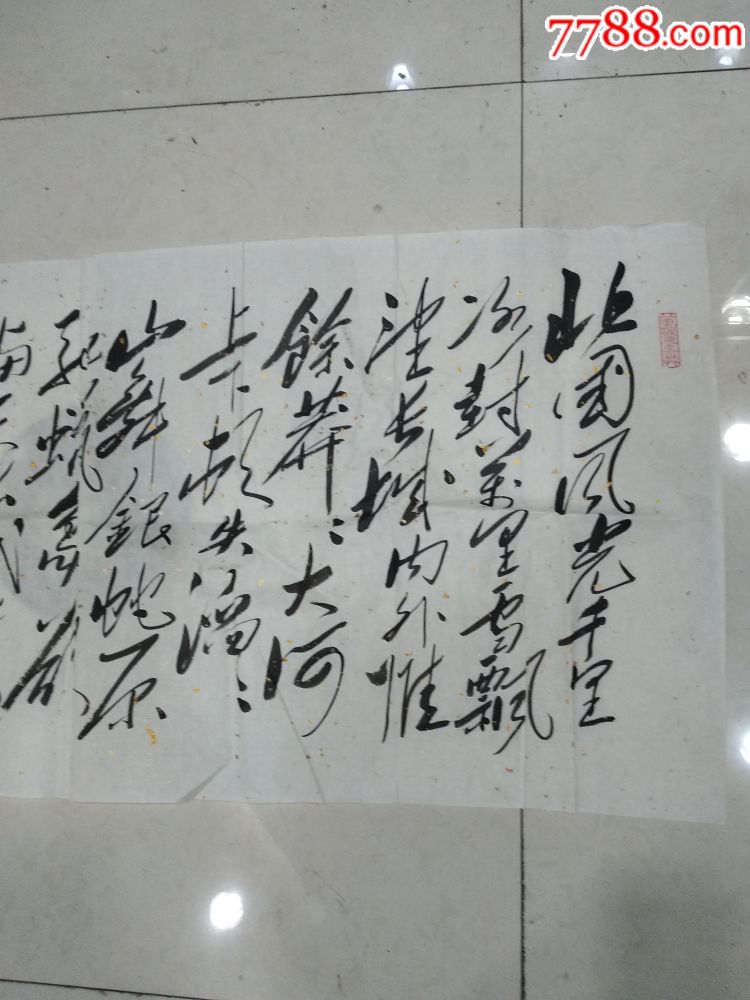 7788.com
北國风光千里
冰封萬里雪飄
望长城内外惟
餘莽々大河
上下顿失滔々
山舞銀蛇原
驰蜡象欲